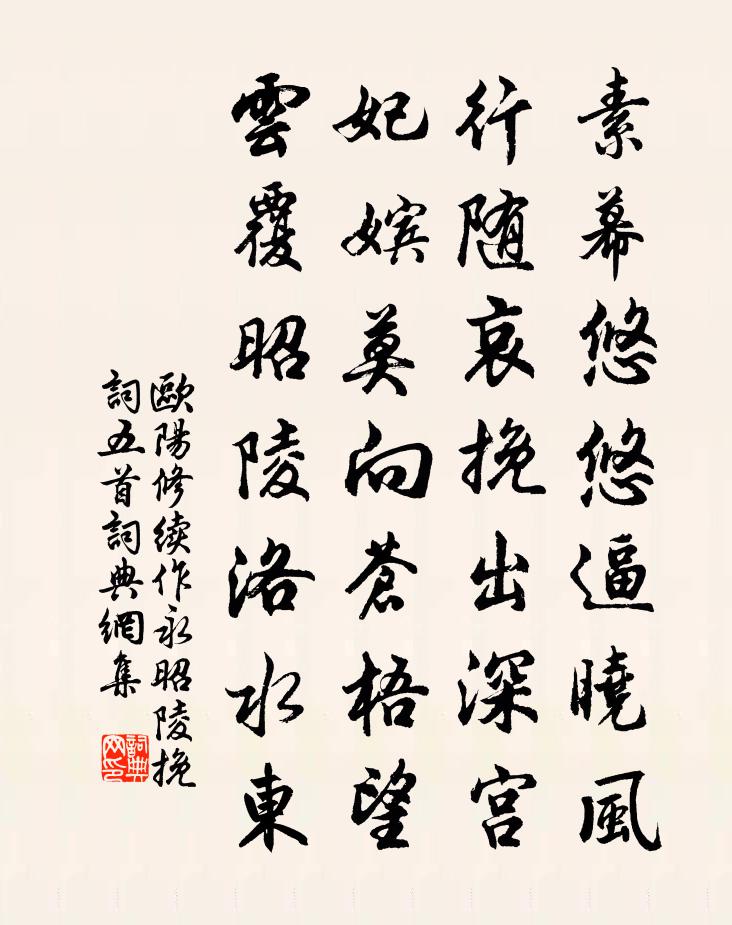 素幕悠悠逼曉風
行随哀挽出深宫
妃嬪莫向蒼梧望
雲覆昭陵洛水東
歐陽修續作永昭陵挽
詞五首詞典網集
詞典網印